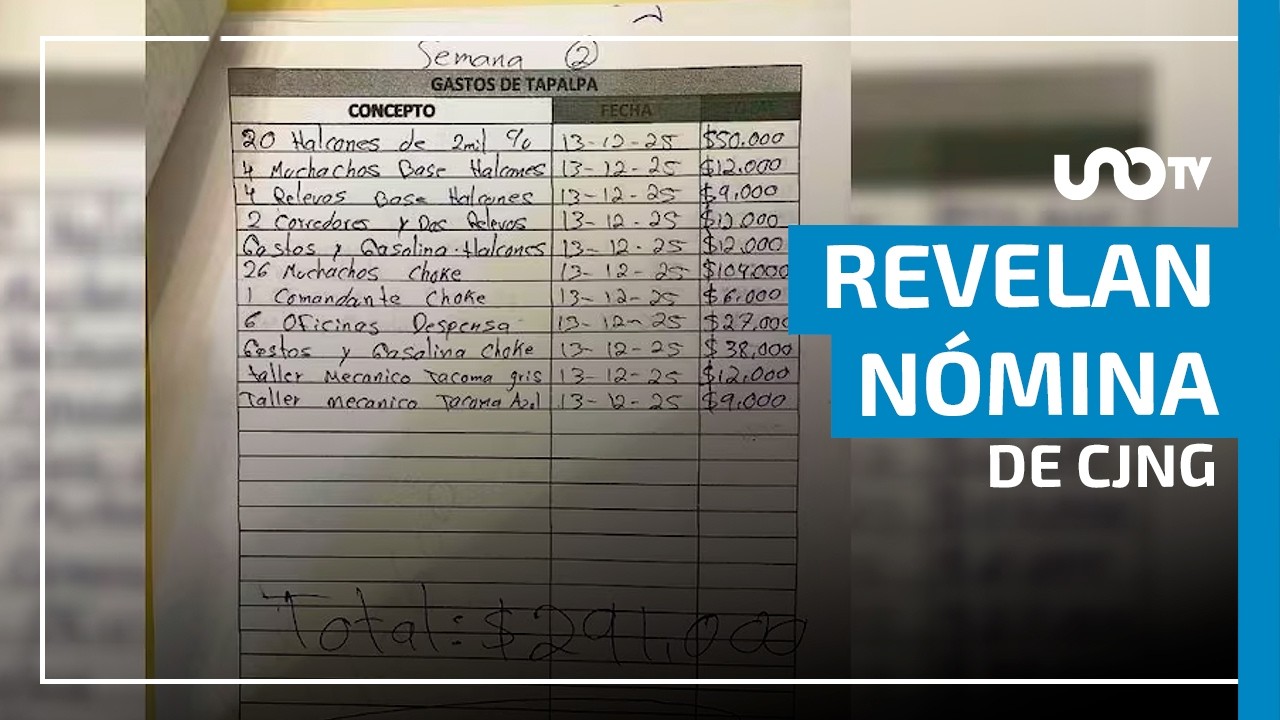 Semana 2
GASTOS DE TAPALPA
CONCEPTO FECHA
20 Halcones de 2mil % 13-12-25 $50.000
4 Muchachos Base Halcones 13-12-25 $12.000
4 Relevos Base Halcones 13-12-25 $9,000
2 Corredores y Dos Relevos 13-12-25 $12.000
Gastos y Gasolina Halcones 13-12-25 $12.000
26 Muchachos Choke 13-12-25 $104.000
1 Comandante Choke 13-12-25 $6.000
6 Oficinas Despensa 13-12-25 $27,000
Gastos y Gasolina Choke 13-12-25 $38,000
taller Mecanico Tacoma gris 13-12-25 $12,000
Taller mecanico Tacoma Azul 13-12-25 $9,000
Total: $291,000
UNOTV
REVELAN
NÓMINA
DE CJNG